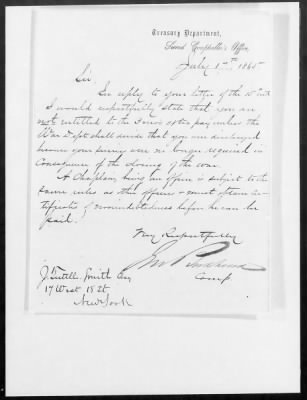 Treasury Department,
Second Comptroller's Office,
July 17th, 1865
Sir
In reply to your letter of the 15th inst
I would respectfully state that you are
not entitled to the 3 mos extra pay unless the
War Dept shall decide that you are discharged
because your services were no longer required in
Consequence of the closing of the war.
A Chaplain being an officer is subject to the
same rules as other officers & must obtain
certificates of nonindebtedness before he can be
paid.
Very Respectfully
Comp
J. Smith Esq
17 West 18 St
New York